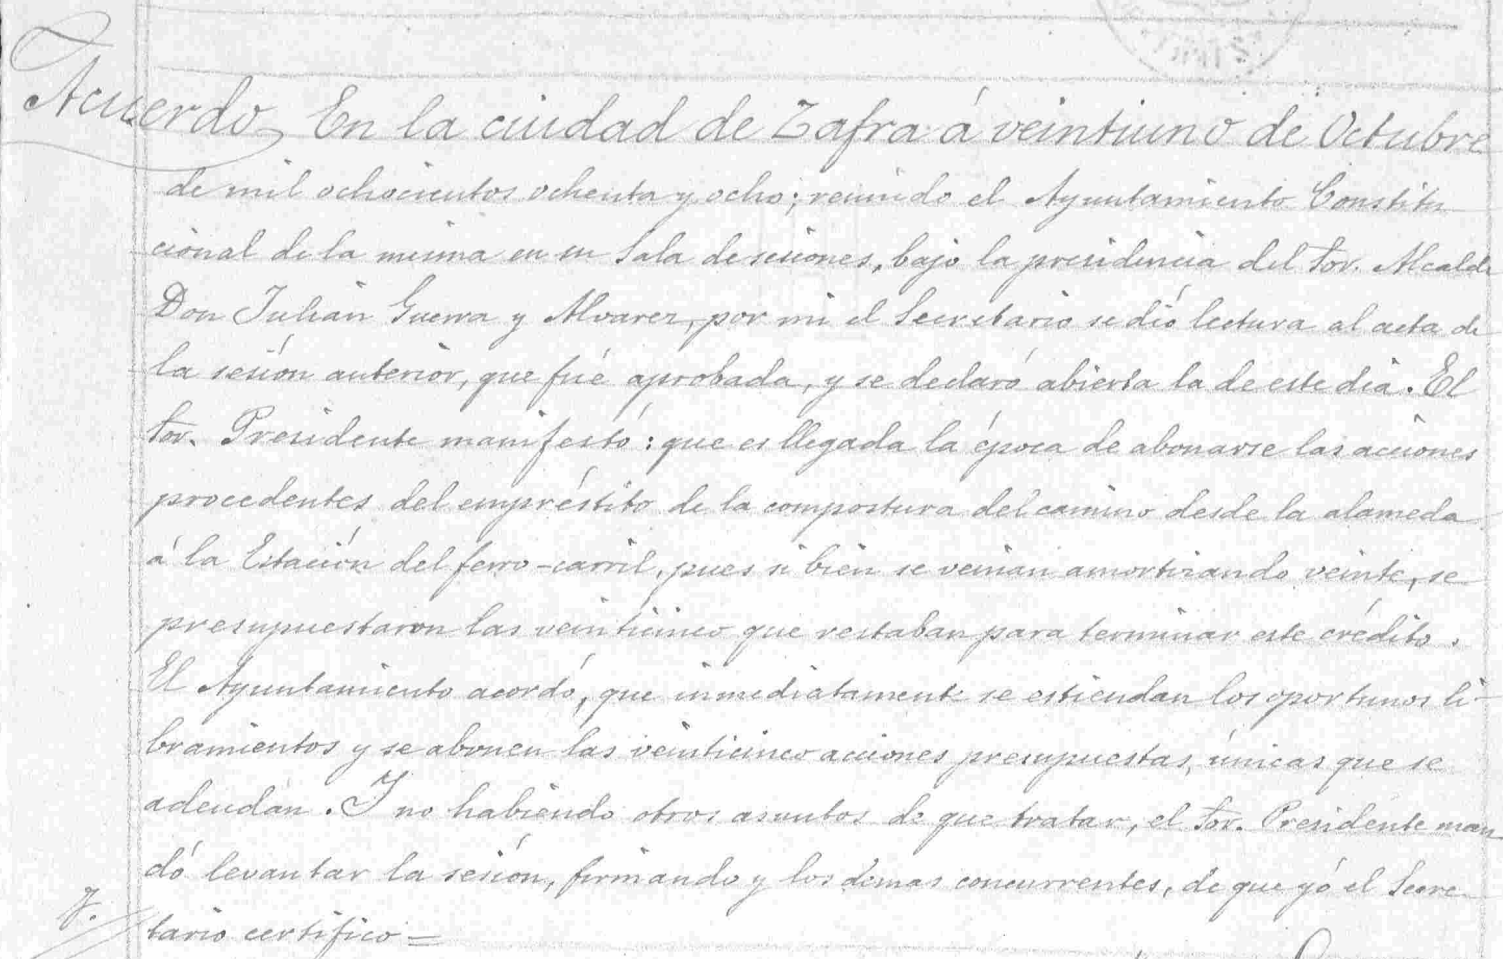 Acuerdo En la ciudad de Zafra á veintiuno de Octubre
de mil ochocientos ochenta y ocho; reunido el Ayuntamiento Constitu
cional de la misma en su Sala de sesiones, bajo la presidencia del Sor. Alcalde
Don Julián Guerra y Alvarez, por mi el Secretario se dió lectura al acta de
la sesión anterior, que fué aprobada, y se declaró abierta la de este dia. El
Sor. Presidente manifestó: que es llegada la época de abonarse las acciones
procedentes del empréstito de la compostura del camino desde la alameda
á la Estación del ferro-carril, pues si bien se venian amortizando veinte, se
presupuestaron las veinticinco que restaban para terminar este crédito.
El Ayuntamiento acordó, que inmediatamente se estiendan los oportunos li-
bramientos y se abonen las veinticinco acciones presupuestas, únicas que se
adeudán. Y no habiendo otros asuntos de que tratar, el Sor. Presidente man
dó levantar la sesión, firmando y los demas concurrentes, de que yó el Secre
tario certifico=